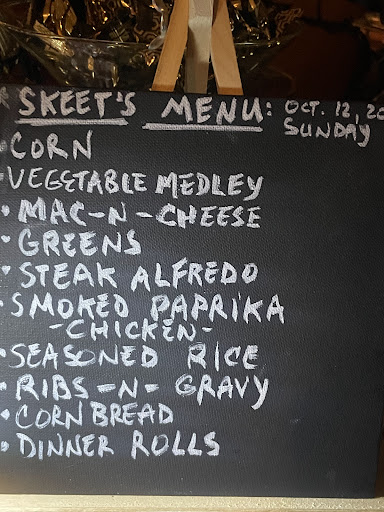 * SKEET'S MENU: OCT. 12, 20
SUNDAY
• CORN
• VEGETABLE MEDLEY
• MAC-N-CHEESE
• GREENS
• STEAK ALFREDO
• SMOKED PAPRIKA
-CHICKEN-
• SEASONED RICE
• RIBS-N-GRAVY
• CORN BREAD
• DINNER ROLLS